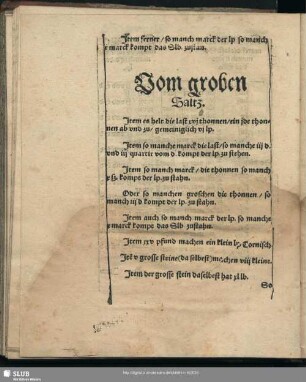 Item ferner / so manch marck der lp. so manch
e marck kompt das Slb. zustan.
Vom groben
Saltz.
Item es helt die last xvij thonnen / ein jde thon-
nen ab vnd zu / gemeinigklich vj lp.
Item so manche marck die last / so manche iij d.
vnd iij quartte vom d. kompt der lp. zu stehen.
Item so manch marck / die thonnen so manch
kompt der lp. zu stahn.
Oder so manchen groschen die thonnen / so
manch iij d kompt der lp. zu stahn.
Item auch so manch marck der lp. so manche
marck kompt das Slb. zu stahn.
Item xxv pfund machen ein klein Cornisch
Itē v grosse steine (da selbest) machen viij kleine.
Item der grosse stein daselbest hat xl lb.
So
SLUB